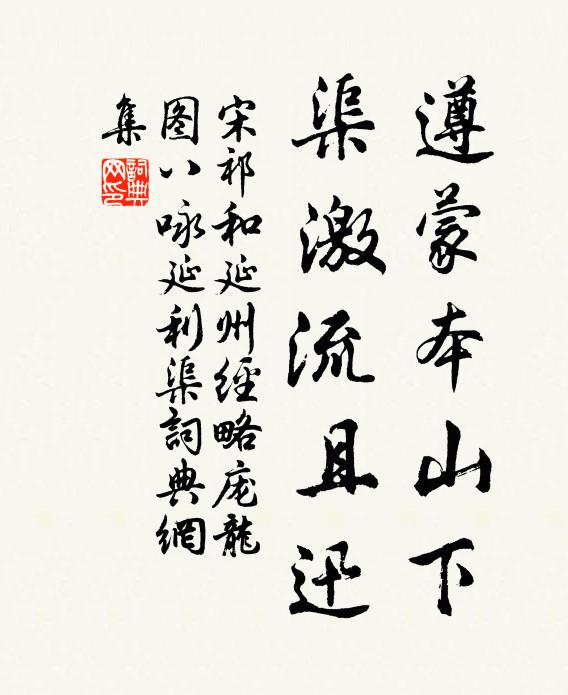 遵蒙本山下
渠激流且迅
宋祁和延州經略庞龍
图八咏延利渠詞典網
集
詞典
网印